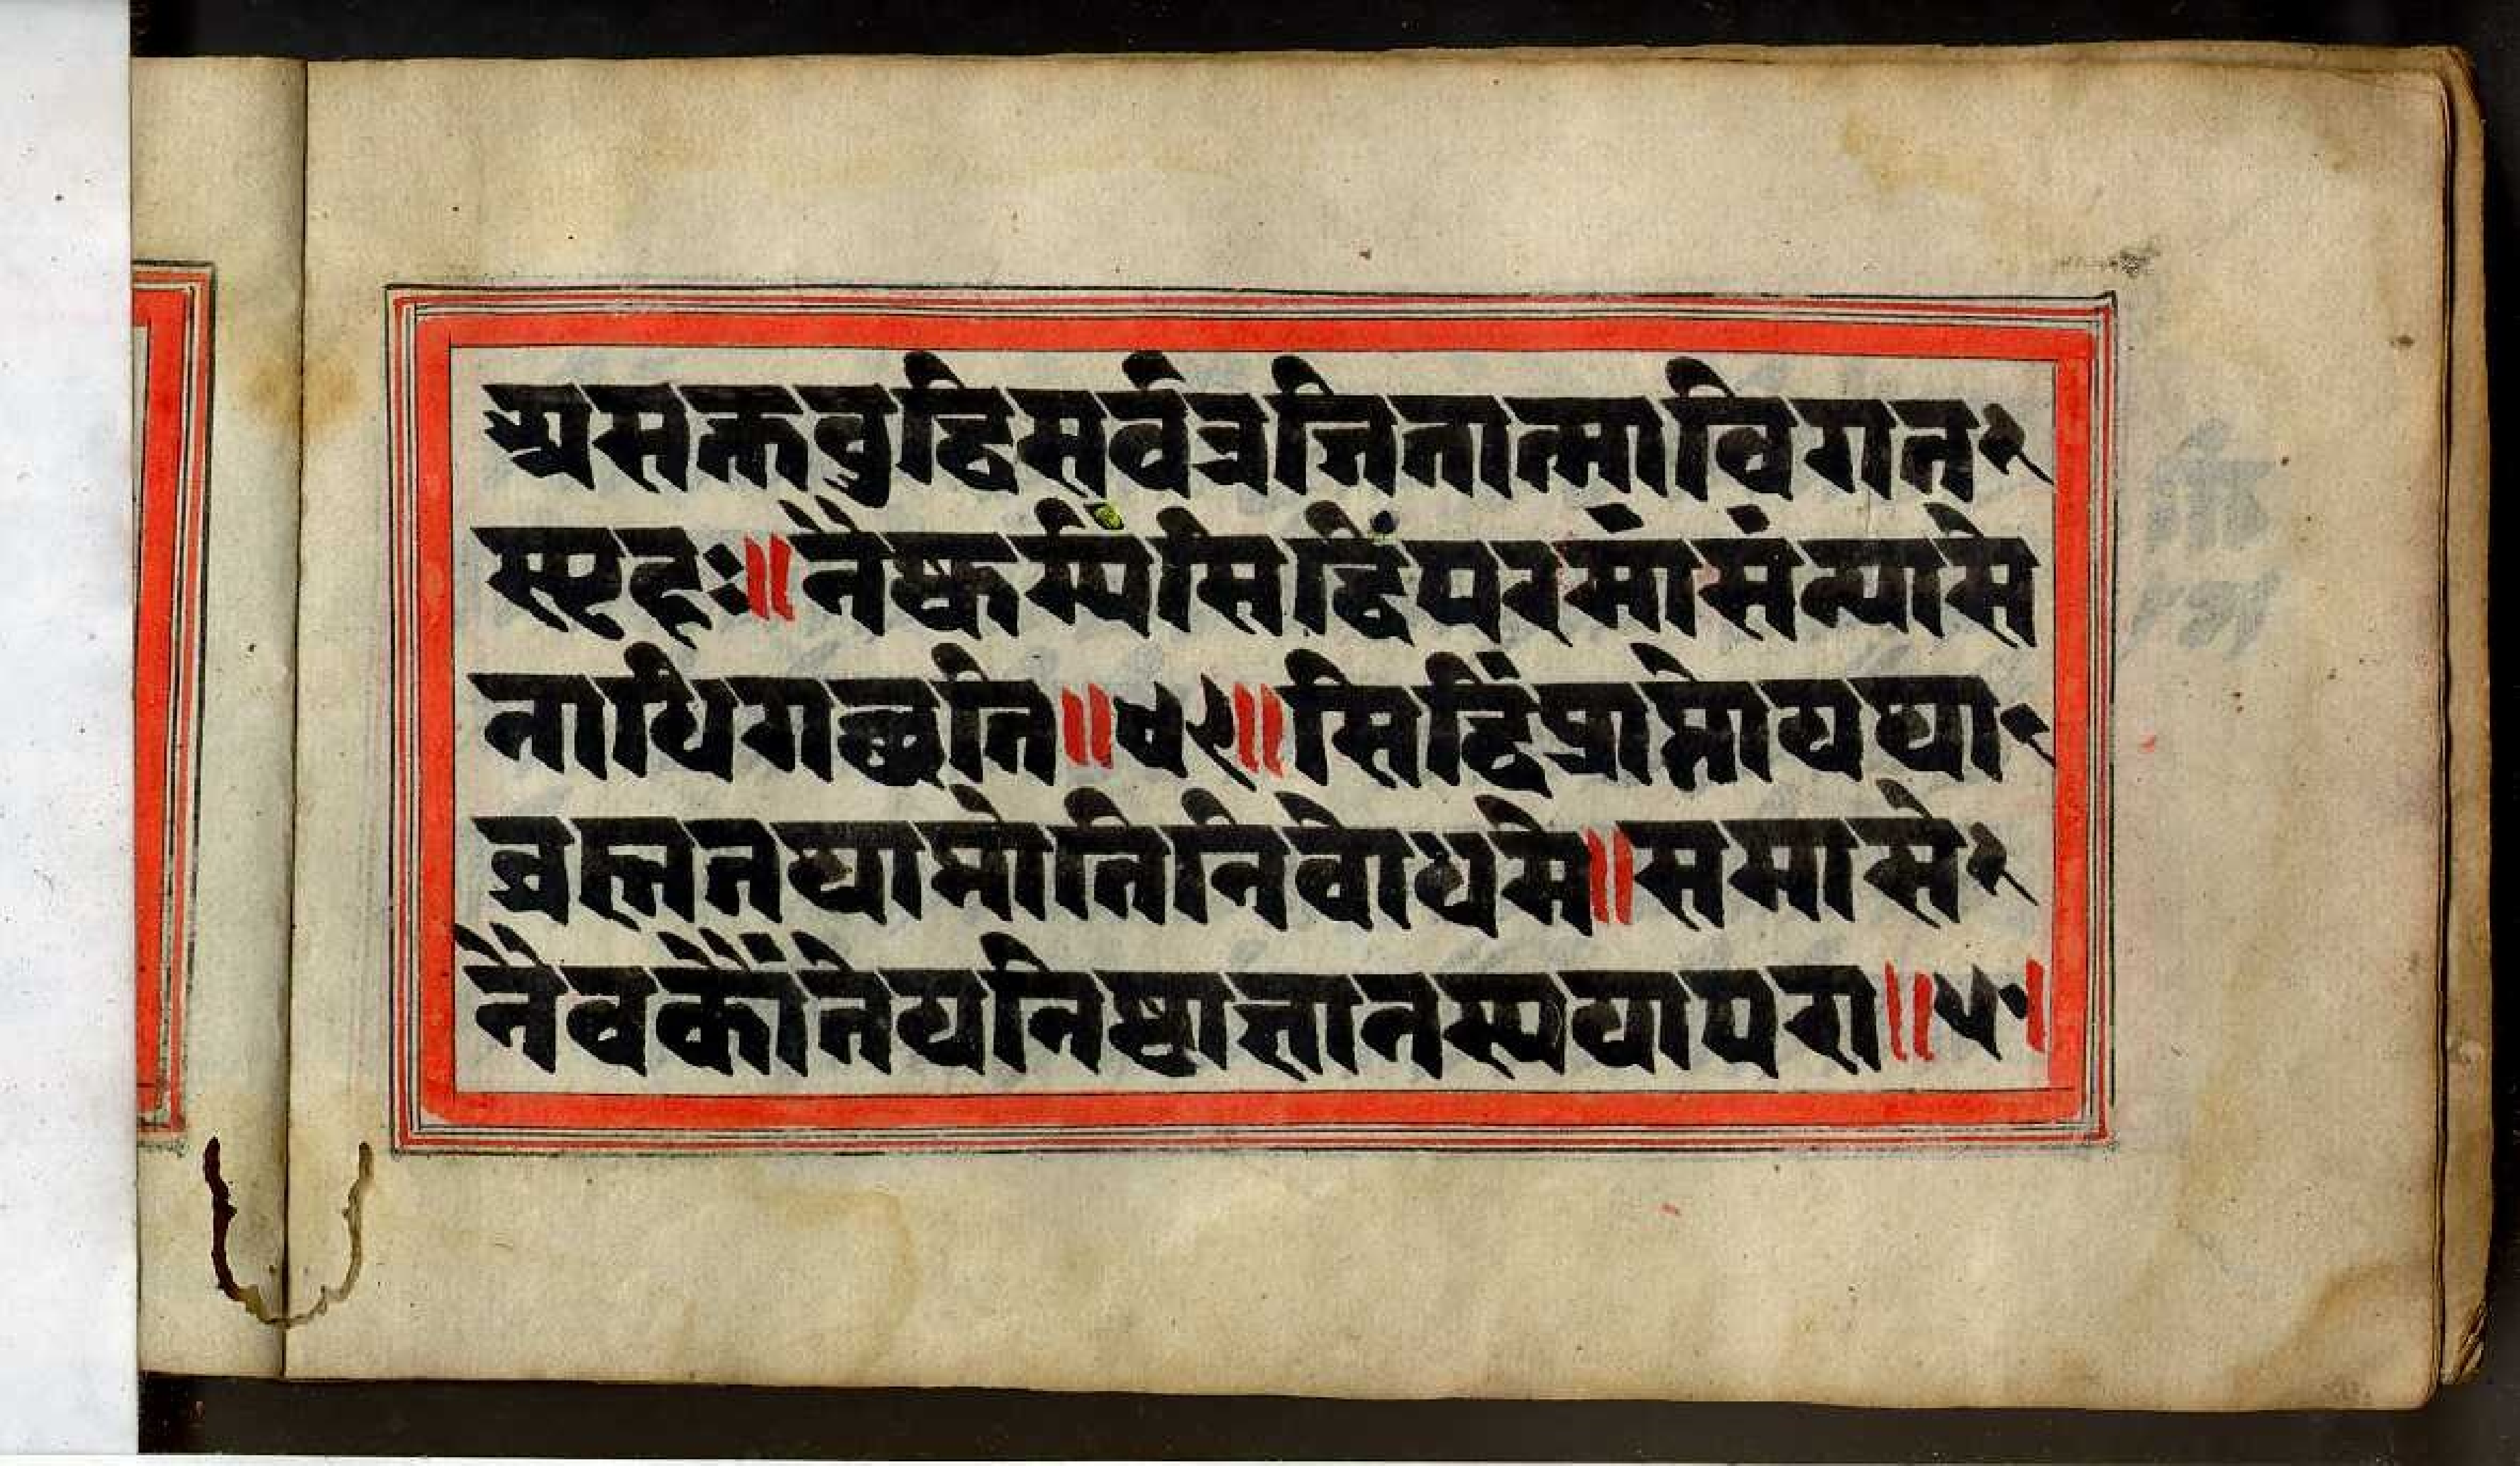 असक्तबुद्धिसर्वत्रजितात्माविगत
स्पृहः॥नैष्कर्म्यिसिद्धिंपरमांसंन्यासे
नाधिगच्छति॥४९॥सिद्धिंप्राप्तोयथा
ब्रह्मतथाप्नोतिनिबोधमे॥समासे
नैवकौंतेयनिष्ठाज्ञानस्ययापरा॥५०।